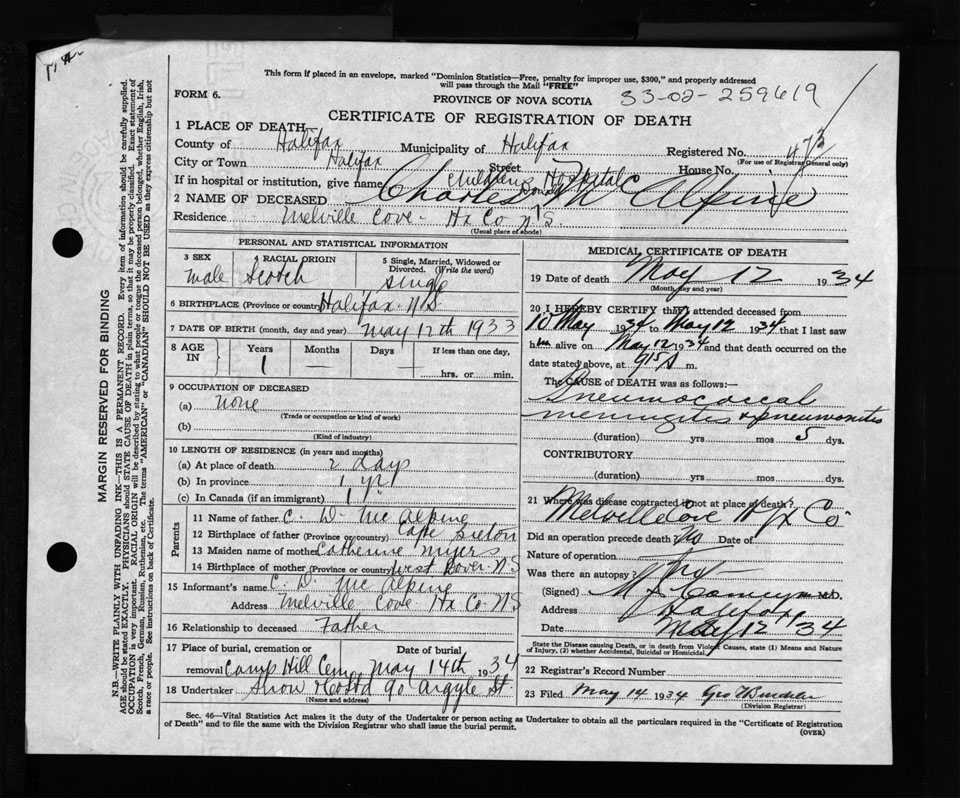 This form if placed in an envelope, marked "Dominion Statistics—Free, penalty for improper use, $300," and properly addressed
will pass through the Mail "FREE"
FORM 6.
PROVINCE OF NOVA SCOTIA
33-02-259619
CERTIFICATE OF REGISTRATION OF DEATH
1 PLACE OF DEATH—
County of Halifax Municipality of Halifax Registered No.
(For use of Registrar General only)
City or Town Halifax Street House No.
If in hospital or institution, give name Childrens Hospital
2 NAME OF DECEASED Charles Mc Alpine
Residence Melville Cove - Hx Co N.S.
(Usual place of abode)
PERSONAL AND STATISTICAL INFORMATION
3 SEX male
4 RACIAL ORIGIN Scotch
5 Single, Married, Widowed or Divorced. (Write the word) single
6 BIRTHPLACE (Province or country) Halifax N.S.
7 DATE OF BIRTH (month, day and year) May 12th 1933
8 AGE IN Years Months Days If less than one day,
1 — — hrs. or min.
9 OCCUPATION OF DECEASED
(a) none
(Trade or occupation or kind of work)
(b)
(Kind of industry)
10 LENGTH OF RESIDENCE (in years and months)
(a) At place of death 2 days
(b) In province 1 yr
(c) In Canada (if an immigrant) 1 "
Parents
11 Name of father C. D. Mc Alpine
12 Birthplace of father (Province or country) Cape Breton
13 Maiden name of mother Catherine Myers
14 Birthplace of mother (Province or country) West Dover N.S
15 Informant's name C. D. Mc Alpine
Address Melville Cove Hx Co N.S
16 Relationship to deceased Father
17 Place of burial, cremation or removal Camp Hill Cem Date of burial May 14th 1934
18 Undertaker Snow & Co Ltd 90 Argyle St.
(Name and address)
MEDICAL CERTIFICATE OF DEATH
19 Date of death May 12 1934
(Month, day and year)
20 I HEREBY CERTIFY that I attended deceased from
10 May 1934 to May 12 1934 that I last saw
him alive on May 12 1934 and that death occurred on the
date stated above, at 915 A m.
The CAUSE of DEATH was as follows:—
Pneumococcal
meningitis & pneumonitis
(duration) yrs mos 5 dys.
CONTRIBUTORY
(duration) yrs mos dys.
21 Where was disease contracted if not at place of death?
Melville Cove Hfx Co.
Did an operation precede death? No Date of
Nature of operation
Was there an autopsy? No
(Signed) M.D.
Address Halifax
Date May 12 34
State the Disease causing Death, or in death from Violent Causes, state (1) Means and Nature
of Injury, (2) whether Accidental, Suicidal or Homicidal.
22 Registrar's Record Number
23 Filed May 14 1934 Geo
(Division Registrar)
Sec. 46—Vital Statistics Act makes it the duty of the Undertaker or person acting as Undertaker to obtain all the particulars required in the "Certificate of Registration
of Death" and to file the same with the Division Registrar who shall issue the burial permit.
(OVER)
MARGIN RESERVED FOR BINDING
N.B.—WRITE PLAINLY WITH UNFADING INK—THIS IS A PERMANENT RECORD. Every item of information should be carefully supplied.
AGE should be stated EXACTLY. PHYSICIANS should STATE CAUSE OF DEATH in plain terms, so that it may be properly classified. Exact statement of
OCCUPATION is very important. RACIAL ORIGIN will be described by stating to what people or tongue the deceased person belonged, whether English, Irish,
Scotch, French, German, Russian, Ruthenian, etc. The terms "AMERICAN" or "CANADIAN" SHOULD NOT BE USED as they express citizenship but not
a race or people. See instructions on back of Certificate.